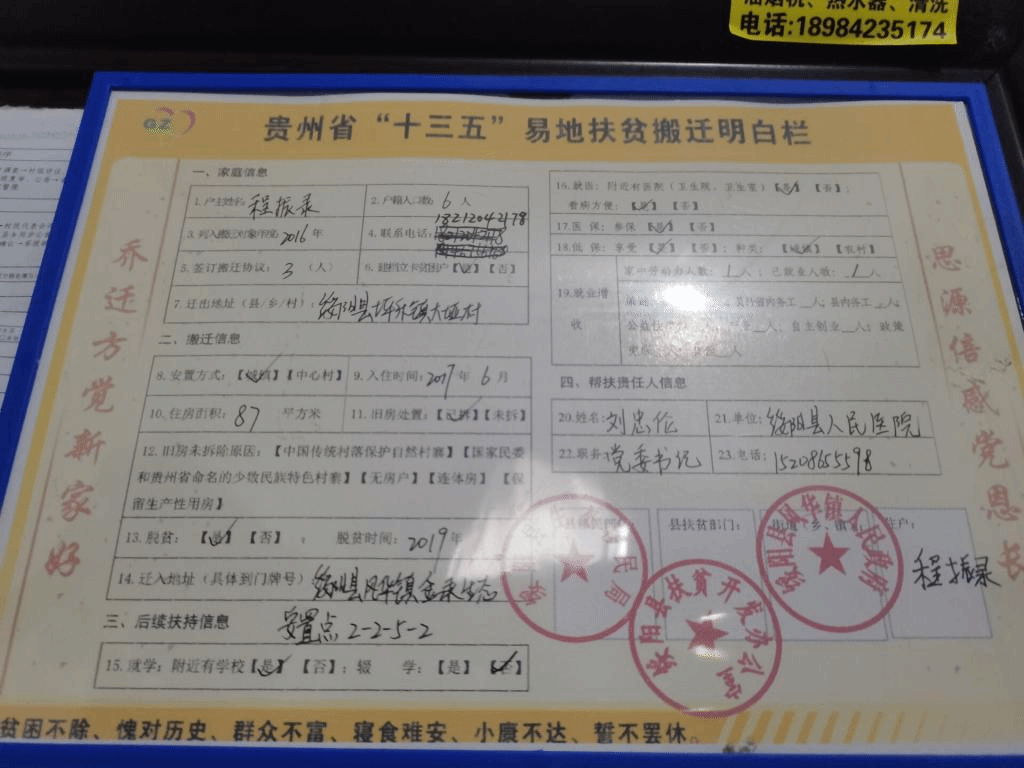 油烟机、热水器、清洗
电话:18984235174
GZ
贵州省“十三五”易地扶贫搬迁明白栏
乔迁方觉新家好
思源倍感党恩长
一、家庭信息
1.户主姓名: 程振录 2.户籍人口数: 6 人
3.列入搬迁对象年份: 2016 年 4.联系电话: 18212042178
5.签订搬迁协议: 3 (人) 6.建档立卡贫困户【是】【否】
7.迁出地址(县/乡/村): 绥阳县坪乐镇大垭村
二、搬迁信息
8.安置方式:【城镇】【中心村】 9.入住时间: 2017 年 6 月
10.住房面积: 87 平方米 11.旧房处置:【已拆】【未拆】
12.旧房未拆除原因:【中国传统村落保护自然村寨】【国家民委
和贵州省命名的少数民族特色村寨】【无房户】【连体房】【保
留生产性用房】
13.脱贫:【是】【否】; 脱贫时间: 2019 年
14.迁入地址(具体到门牌号) 绥阳县风华镇金承生态
安置点 2-2-5-2
三、后续扶持信息
15.就学:附近有学校【是】【否】;辍 学:【是】【否】
16.就医:附近有医院(卫生院、卫生室)【是】【否】;
看病方便:【是】【否】
17.医 保:参保【是】【否】
18.低 保:享受【是】【否】;种类:【城镇】【农村】
19.就业增收
家中劳动力人数: 1 人;已就业人数: 1 人
县外省内务工 人;县内务工 人;
公益性 人;自主创业 人;政策
兜底 人
四、帮扶责任人信息
20.姓名: 刘忠伦 21.单位: 绥阳县人民医院
22.职务: 党委书记 23.电话: 15208655598
县移民部门: 县扶贫部门: 街道(乡、镇): 住户:
程振录
民局
绥阳县扶贫开发办公室
绥阳县风华镇人民政府
贫困不除、愧对历史、群众不富、寝食难安、小康不达、誓不罢休。